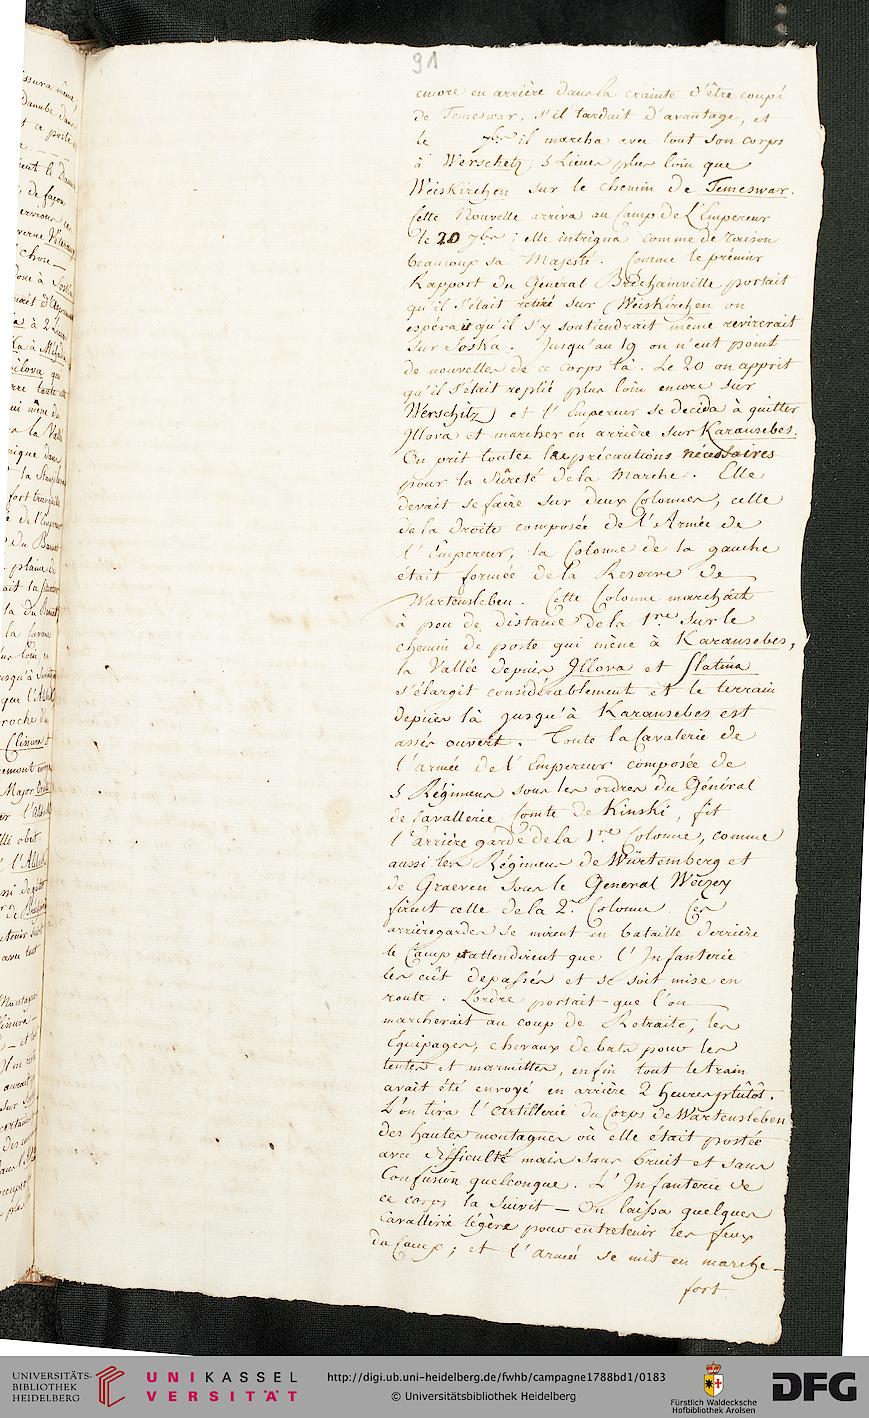 91
encore en arrière dans la crainte d'être coupé
de Temeswar, s'il tardait d'avantage, et
le 7bre il marcha avec tout son corps
à Werschetz, 5 Lieues plus loin que
Weiskirchen sur le chemin de Temeswar.
Cette Nouvelle arriva au Camp de L'Empereur
le 20 7bre; elle intrigua comme de raison
beaucoup sa Majesté. Comme le prémier
Rapport du Géneral Bréchainville portait
qu'il s'était retiré sur Weiskirchen on
espérait qu'il s'y soutiendrait même revirerait
sur Soska. Jusqu'au 19 on n'eut point
de nouvelles de ce corps là. Le 20 on apprit
qu'il s'était replié plus loin encore sur
Werschitz, et l'Empereur se decida à quitter
Illova et marcher en arrière sur Karansebes.
On prit toutes les précautions nécessaires
pour la Sûreté de la Marche. Elle
devait se faire sur deux Colonnes, celle
de la droite composée de l'Armée de
l'Empereur, la Colonne de la gauche
était formée de la Reserve de
Wartensleben. Cette Colonne marchait
à peu de distance de la 1re sur le
chemin de poste qui mène à Karansebes,
la Vallée depuis Illova et Slatina
s'élargit considérablement et le terrain
depuis là jusqu'à Karansebes est
assés ouvert. Toute la Cavalerie de
l'armée de l'Empereur composée de
5 Régimens sous les ordres du Général
de Cavallerie Comte de Kinski, fit
l'arrière garde de la 1re Colonne, comme
aussi les Régimens de Würtemberg et
de Graeven sous le General Weizey
firent celle de la 2e Colonne. Ces
arrièregardes se mirent en bataille derrière
le Camp et attendirent que l'Infanterie
les eût depassés et se soit mise en
route. L'ordre portait que l'on
marcherait au coup de Retraite, les
Equipages, chevaux de bats pour les
tentes et marmittes, enfin tout le train
avait été envoyé en arrière 2 heures plûtôt.
L'on tira l'artillerie du Corps de Wartensleben
des hautes montagnes où elle était postée
avec difficulté mais sans bruit et sans
Confusion quelconque. L'Infanterie de
ce corps la suivit — On laissa quelques
Cavallerie légère pour entretenir les feux
du Camp; et l'armée se mit en marche —
fort
UNIVERSITÄTS-
BIBLIOTHEK
HEIDELBERG
UNIKASSEL
VERSITÄT
http://digi.ub.uni-heidelberg.de/fwhb/campagne1788bd1/0183
© Universitätsbibliothek Heidelberg
Fürstlich Waldecksche
Hofbibliothek Arolsen
DFG